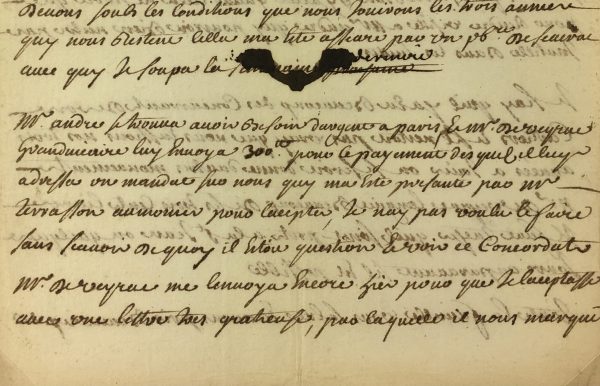 devons soubs les conditions que nous jouirons les trois années
quy nous Restent cella ma esté assuré par un pbre de
avec quy je soupa la semaine derniere
Mr. andré se trouva avoir besoin dargent a paris & Mr. de veyrac
Grand vicaire luy Envoya 300 tt pour le payement desquels il luy
adressa un mandat sur nous quy ma esté presanté par Mr
terrasson aumonier pour lacepter, Je nay pas voulu le faire
sans scavoir de quoy il Estoit question & voir ce Concordat
Mr. de veyrac me lenvoya Encore hier pour que Je laceptasse
avec une lettre tres gratieuse, par laquelle il nous marque